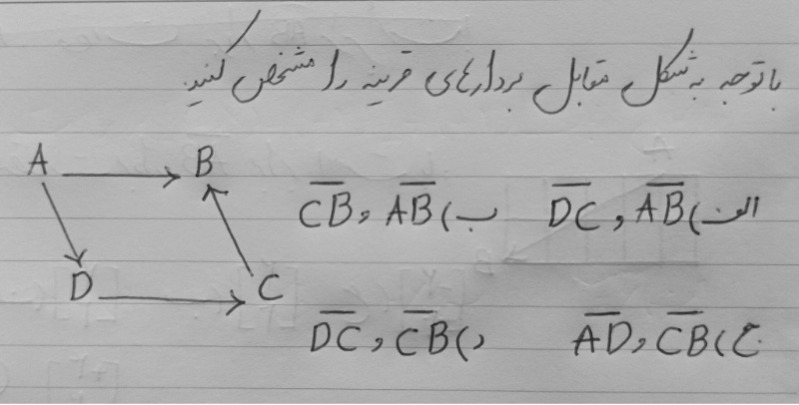 باتوجه به شکل مقابل بردارهای قرینه را مشخص کنید
A B
الف) AB̅ و DC̅ ب) AB̅ و CB̅
D C
ج) CB̅ و AD̅ د) CB̅ و DC̅